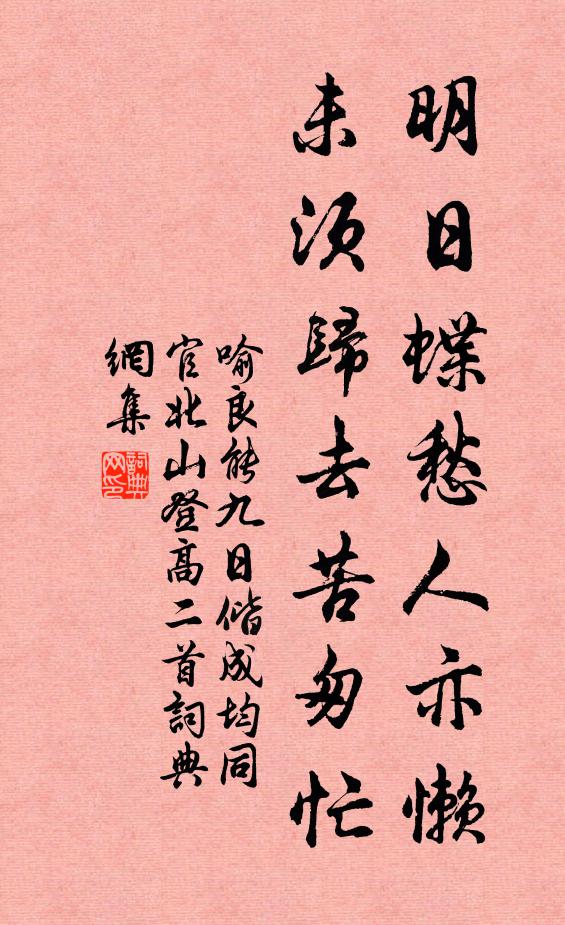 明日蝶愁人亦懒
未须歸去苦匆忙
喻良能九日偕成均同
官北山登高二首詞典
網集
詞典网印